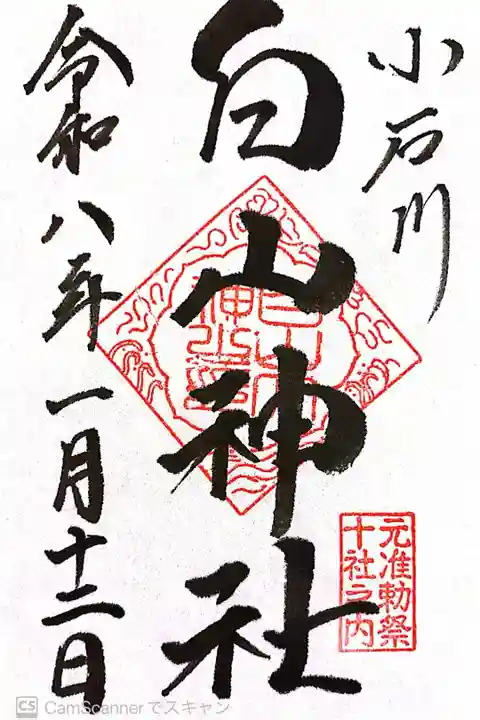 小石川
白山神社
令和八年一月十二日
元准勅祭
十社之内
CS CamScanner でスキャン